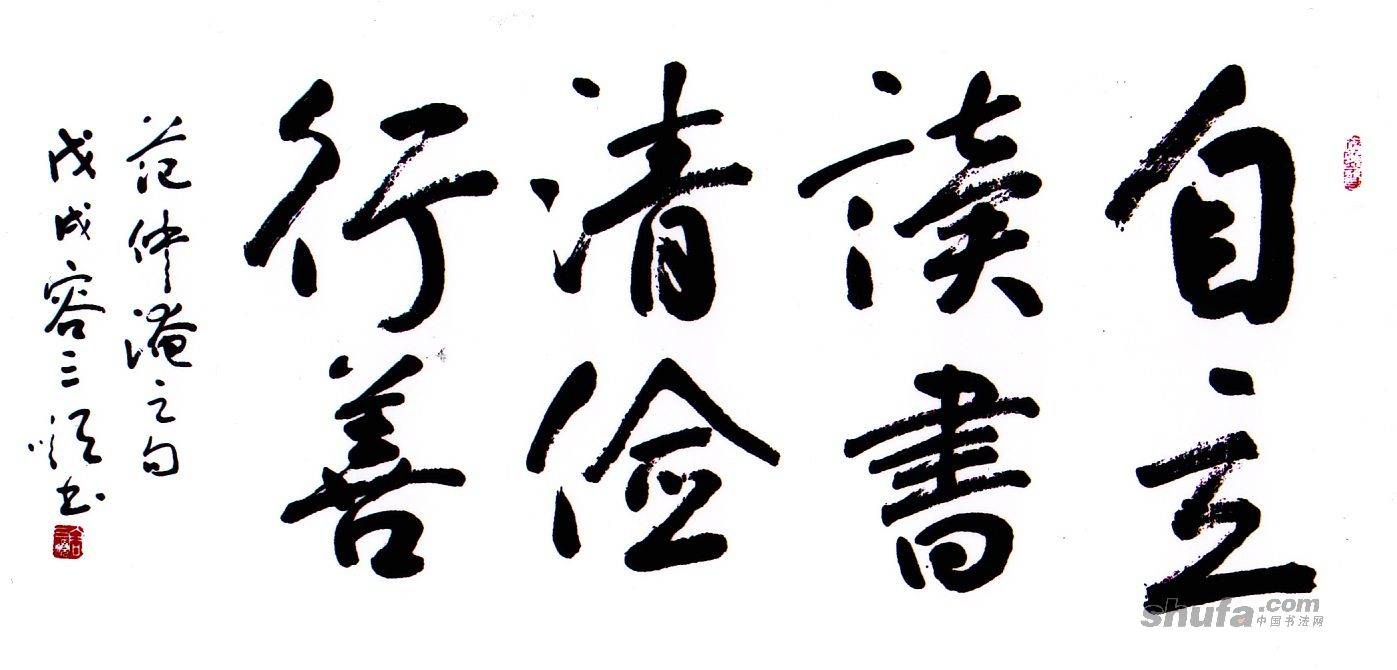 自立
讀書
清儉
行善
范仲淹之句
戊戌容三順书
shufa.com
中国书法网